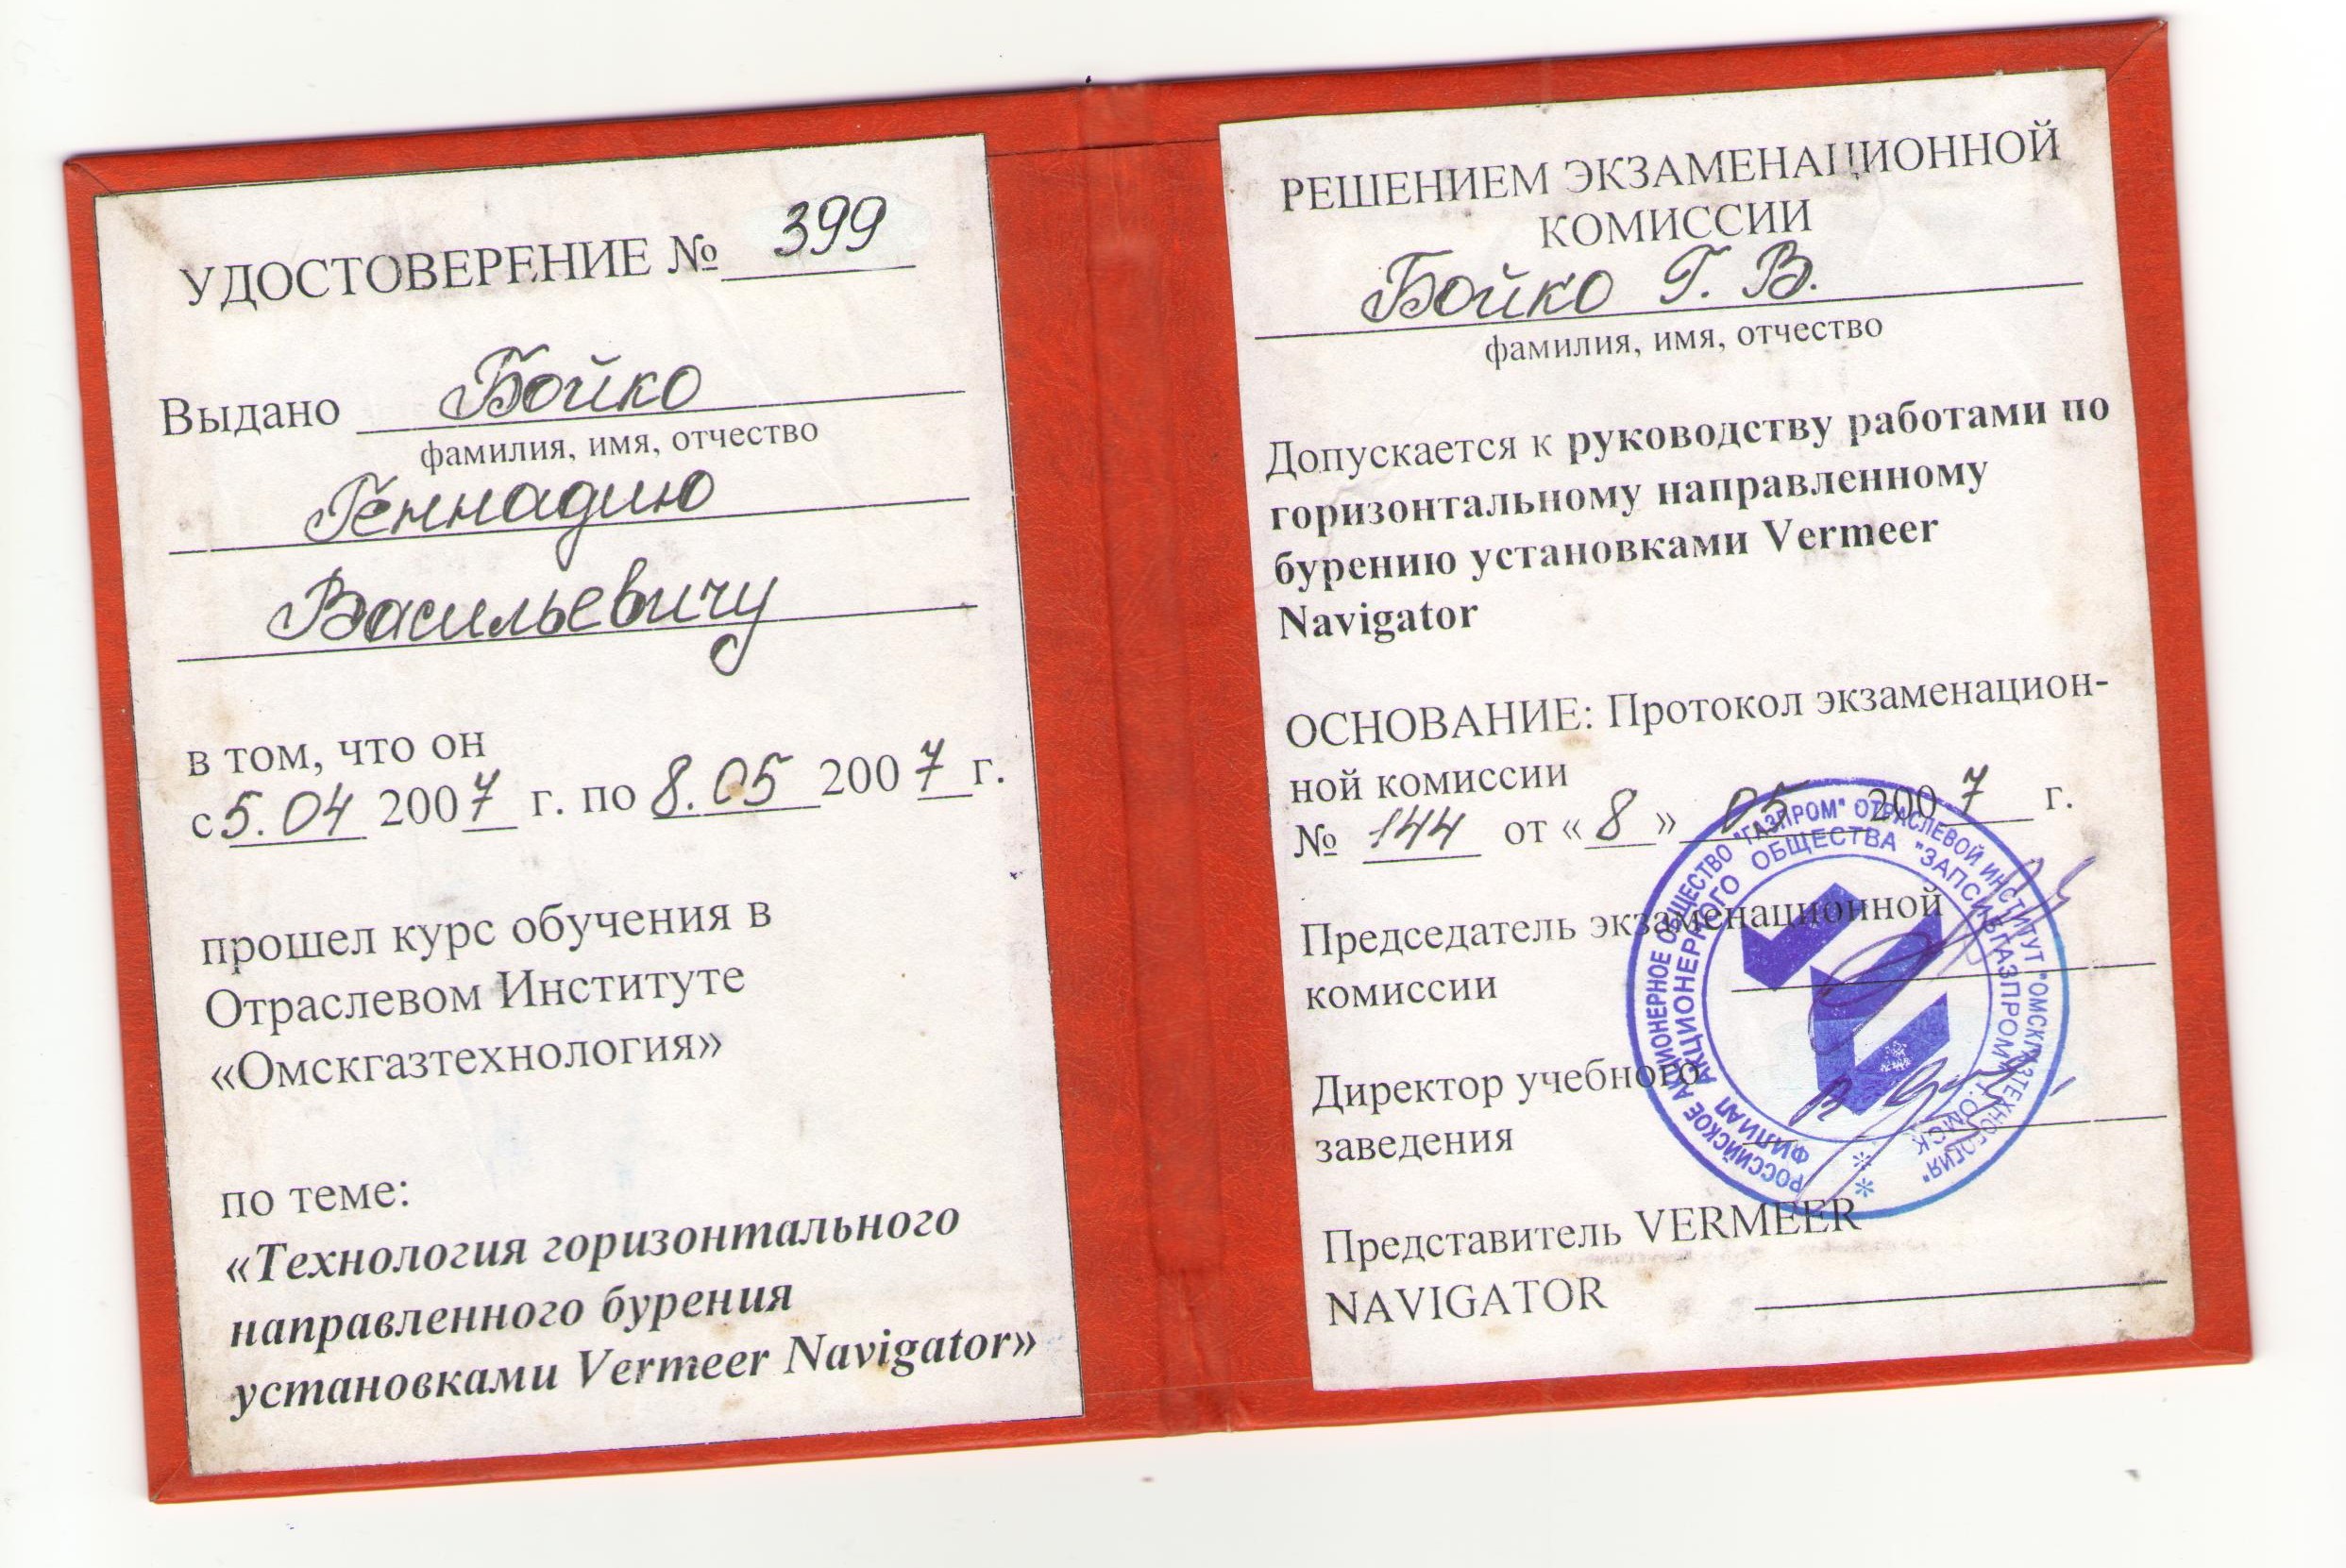 УДОСТОВЕРЕНИЕ № 399
Выдано Бойко
фамилия, имя, отчество
Геннадию
Васильевичу
в том, что он
с 5.04 2007 г. по 8.05 2007 г.
прошел курс обучения в
Отраслевом Институте
«Омскгазтехнология»
по теме:
«Технология горизонтального
направленного бурения
установками Vermeer Navigator»
РЕШЕНИЕМ ЭКЗАМЕНАЦИОННОЙ
КОМИССИИ
Бойко Г. В.
фамилия, имя, отчество
Допускается к руководству работами по
горизонтальному направленному
бурению установками Vermeer
Navigator
ОСНОВАНИЕ: Протокол экзаменацион-
ной комиссии
№ 144 от «8» 05 2007 г.
Председатель экзаменационной
комиссии
Директор учебного
заведения
Представитель VERMEER
NAVIGATOR
РОССИЙСКОЕ АКЦИОНЕРНОЕ ОБЩЕСТВО "ГАЗПРОМ" ОТРАСЛЕВОЙ ИНСТИТУТ "ОМСКГАЗТЕХНОЛОГИЯ"
ФИЛИАЛ АКЦИОНЕРНОГО ОБЩЕСТВА "ЗАПСИБГАЗПРОМ" Г. ОМСК